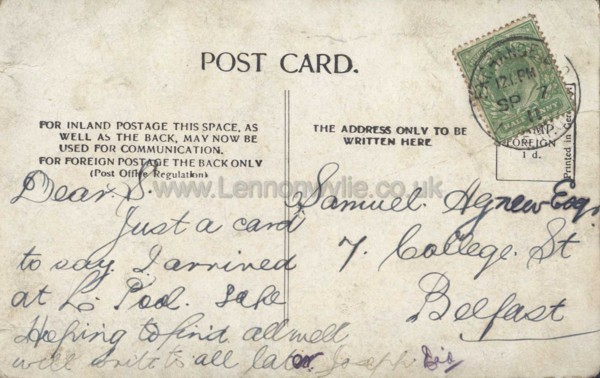 POST CARD.
FOR INLAND POSTAGE THIS SPACE, AS
WELL AS THE BACK, MAY NOW BE
USED FOR COMMUNICATION.
FOR FOREIGN POSTAGE THE BACK ONLY
(Post Office Regulation)
THE ADDRESS ONLY TO BE
WRITTEN HERE
FOREIGN
1 d.
Printed in
12 PM
SP 7
11
www.Lennonwylie.co.uk
Dear S.
Just a card
to say I arrived
at L. Pool. safe
Hoping to find all well
will write to all later
Samuel Agnew Esq.
7. College St
Belfast